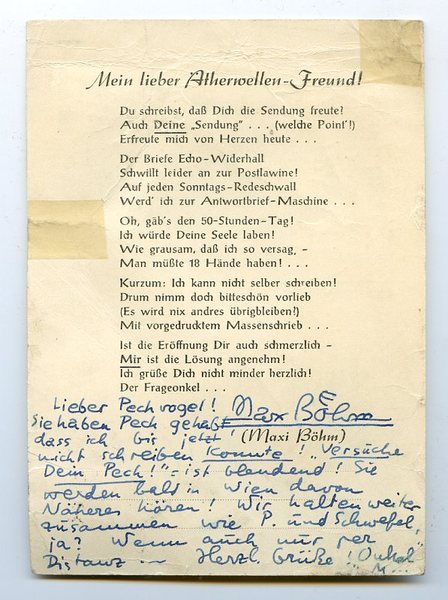 Mein lieber Atherwellen-Freund!
Du schreibst, daß Dich die Sendung freute?
Auch Deine „Sendung" . . . (welche Point'!)
Erfreute mich von Herzen heute . . .
Der Briefe Echo-Widerhall
Schwillt leider an zur Postlawine!
Auf jeden Sonntags-Redeschwall
Werd' ich zur Antwortbrief-Maschine . . .
Oh, gäb's den 50-Stunden-Tag!
Ich würde Deine Seele laben!
Wie grausam, daß ich so versag, -
Man müßte 18 Hände haben! . . .
Kurzum: Ich kann nicht selber schreiben!
Drum nimm doch bitteschön vorlieb
(Es wird nix andres übrigbleiben?)
Mit vorgedrucktem Massenschrieb . . .
Ist die Eröffnung Dir auch schmerzlich -
Mir ist die Lösung angenehm!
Ich grüße Dich nicht minder herzlich!
Der Frageonkel . . .
Lieber Pechvogel! Maxi Böhm
Sie haben Pech gehabt
dass ich bis jetzt (Maxi Böhm)
nicht schreiben konnte! „Versuche
Dein Pech!" = ist blendend! Sie
werden bald in Wien davon
Näheres hören! Wir halten weiter
zusammen wie P. und Schwefel,
ja? Wenn auch nur per
Distanz ... Herzl. Grüße! Onkel
M...